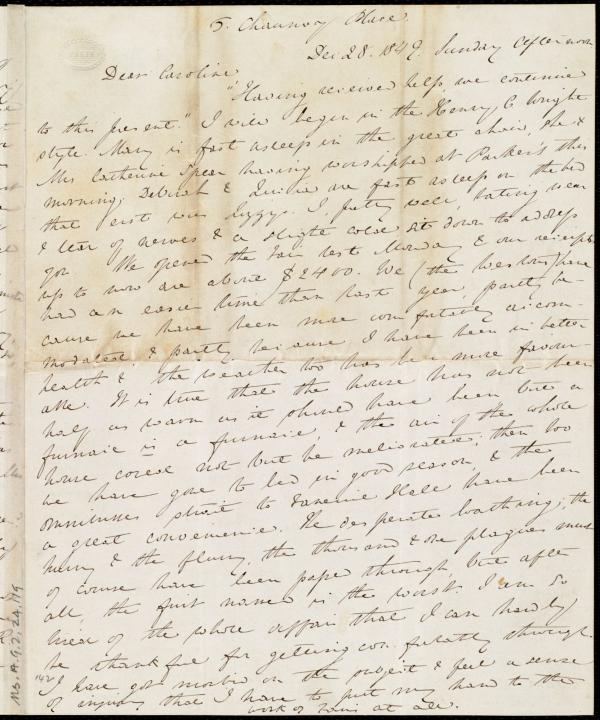 5. Chauncy Place.
Dec 28. 1849. Sunday Afternoon
Dear Caroline,
"Having received help, we continue
to this present." I will begin in the Henry C. Wright
style. Mary is fast asleep in the great chair, she &
Mrs Catherine Spear having worshipped at Parker's this
morning; Deborah & are fast asleep on the bed
that erst was Lizzy's. I, pretty well, bating wear
& tear of nerves & a slight cold sit down to address
you. We opened the Fair last Monday & our receipts
up to now are above $2400. We (the Westons) have
had an easier time than last year, partly be-
cause we have been more comfortably accom-
modated, & partly because I have been in better
health & the weather too has been more favour-
able. It is true that the house has not been
half as warm as it should have been but a
furnace is a furnace & the air of the whole
house could not but be meliorated; then too
we have gone to bed in good season, & the
omnibusses straight to Faneuil Hall have been
a great convenience. The desperate loathing, the
hurry & the flurry, the thousand & one plagues must
of course have been passed through, but after
all the first named is the worst. I am so
tired of the whole affair that I can hardly
be thankful for getting comfortably through.
I have got morbid on the subject & feel a sense
of injury that I have to put my hand to the
work of Fairs at all.
142
Ms. A. 9. 2. 24, 19